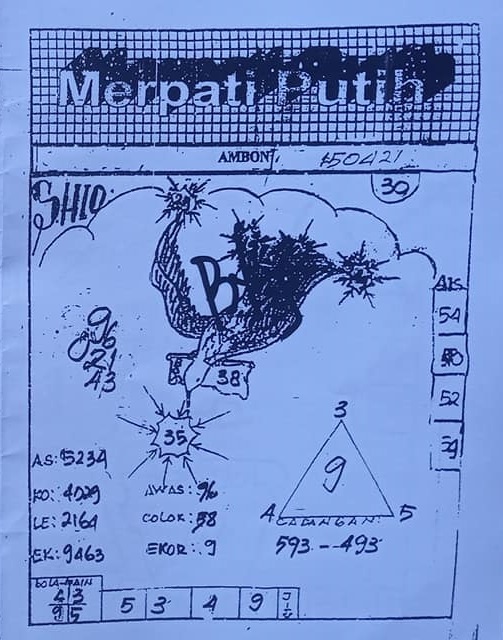 Merpati Putih
AMBON
150421
30
SHIO:
B
AIS
54
52
96
21
43
38
35
3
9
4 5
CADANGAN:
593 -- 493
AS: 5234
KO: 4029
LE: 2164
EK: 9463
AWAS: 96
COLOK: 58
EKOR: 9
BOLA-MAIN
4 3
9 5
5 3 4 9